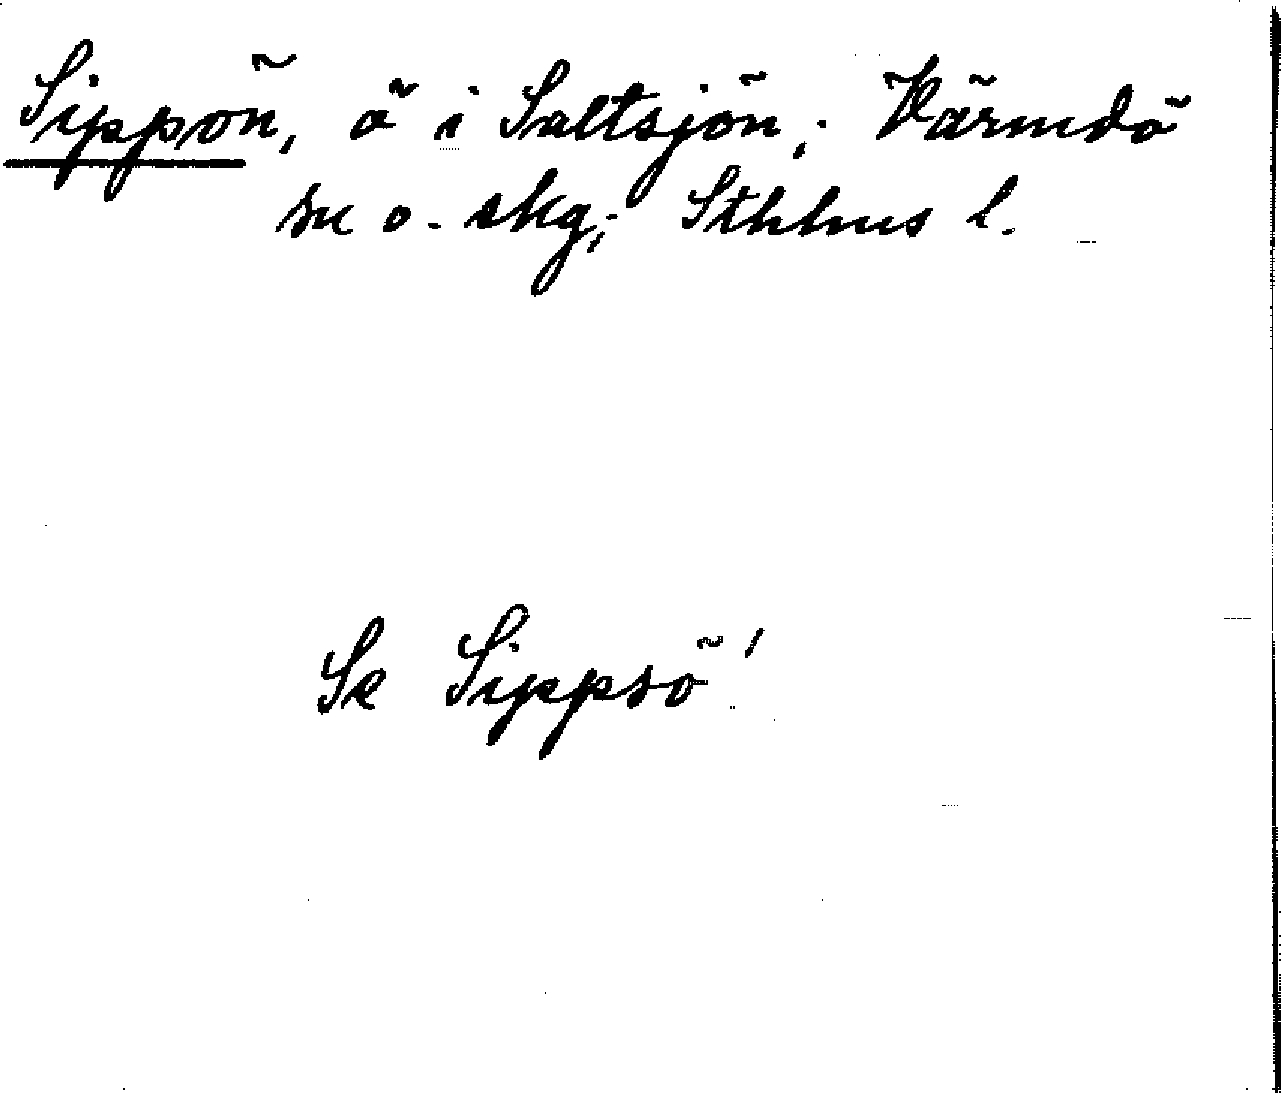 Sippön, ö i Saltsjön; Värmdö
sn o. skg; Sthhus l.
Se Sippsö!